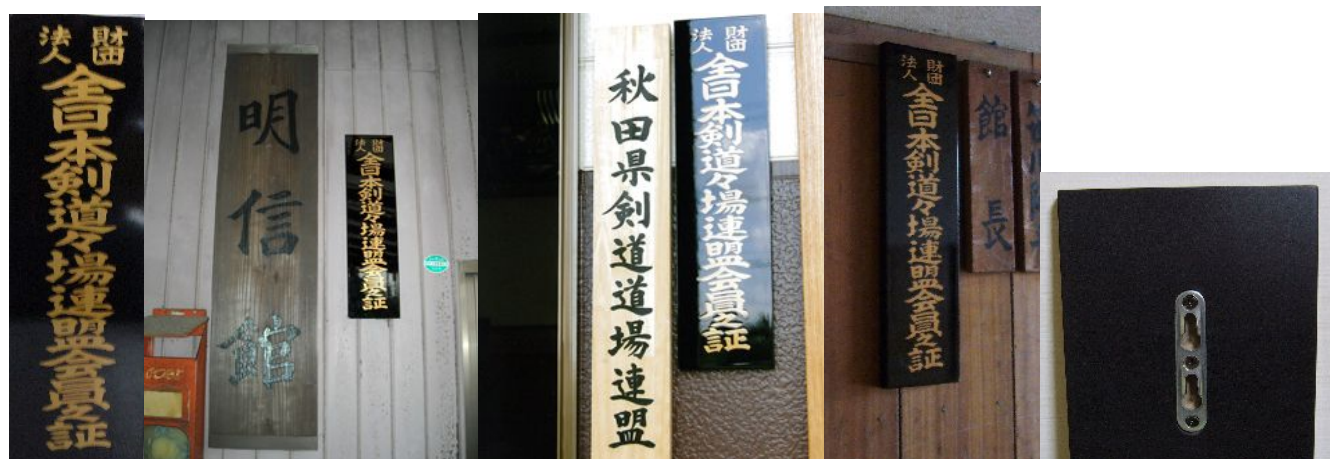 財団
法人
全日本剣道々場連盟会員之証
明信館
財団
法人
全日本剣道々場連盟会員之証
秋田県剣道道場連盟
財団
法人
全日本剣道々場連盟会員之証
財団
法人
全日本剣道々場連盟会員之証
館長